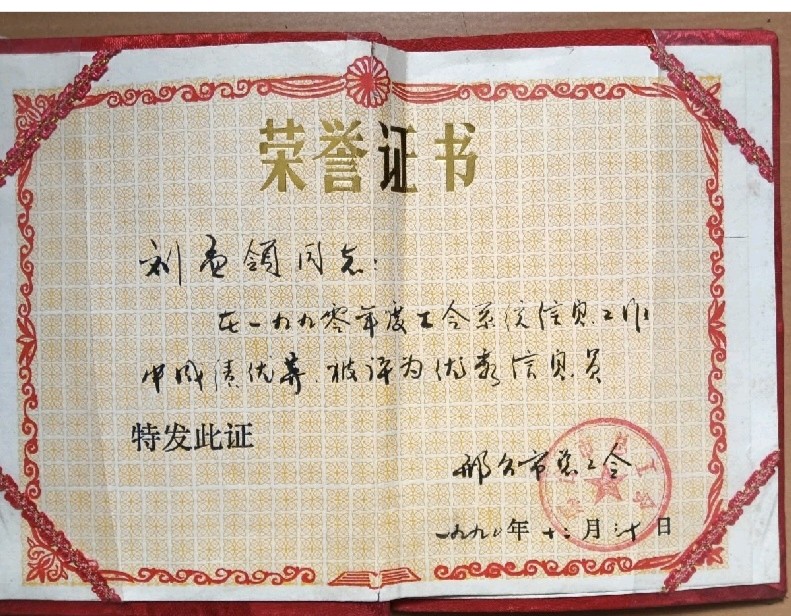 荣誉证书
刘孟领同志：
在一九九零年度工会系统信息工作
中成绩优异，被评为优秀信息员
特发此证
邢台市总工会
一九九〇年十二月三十日